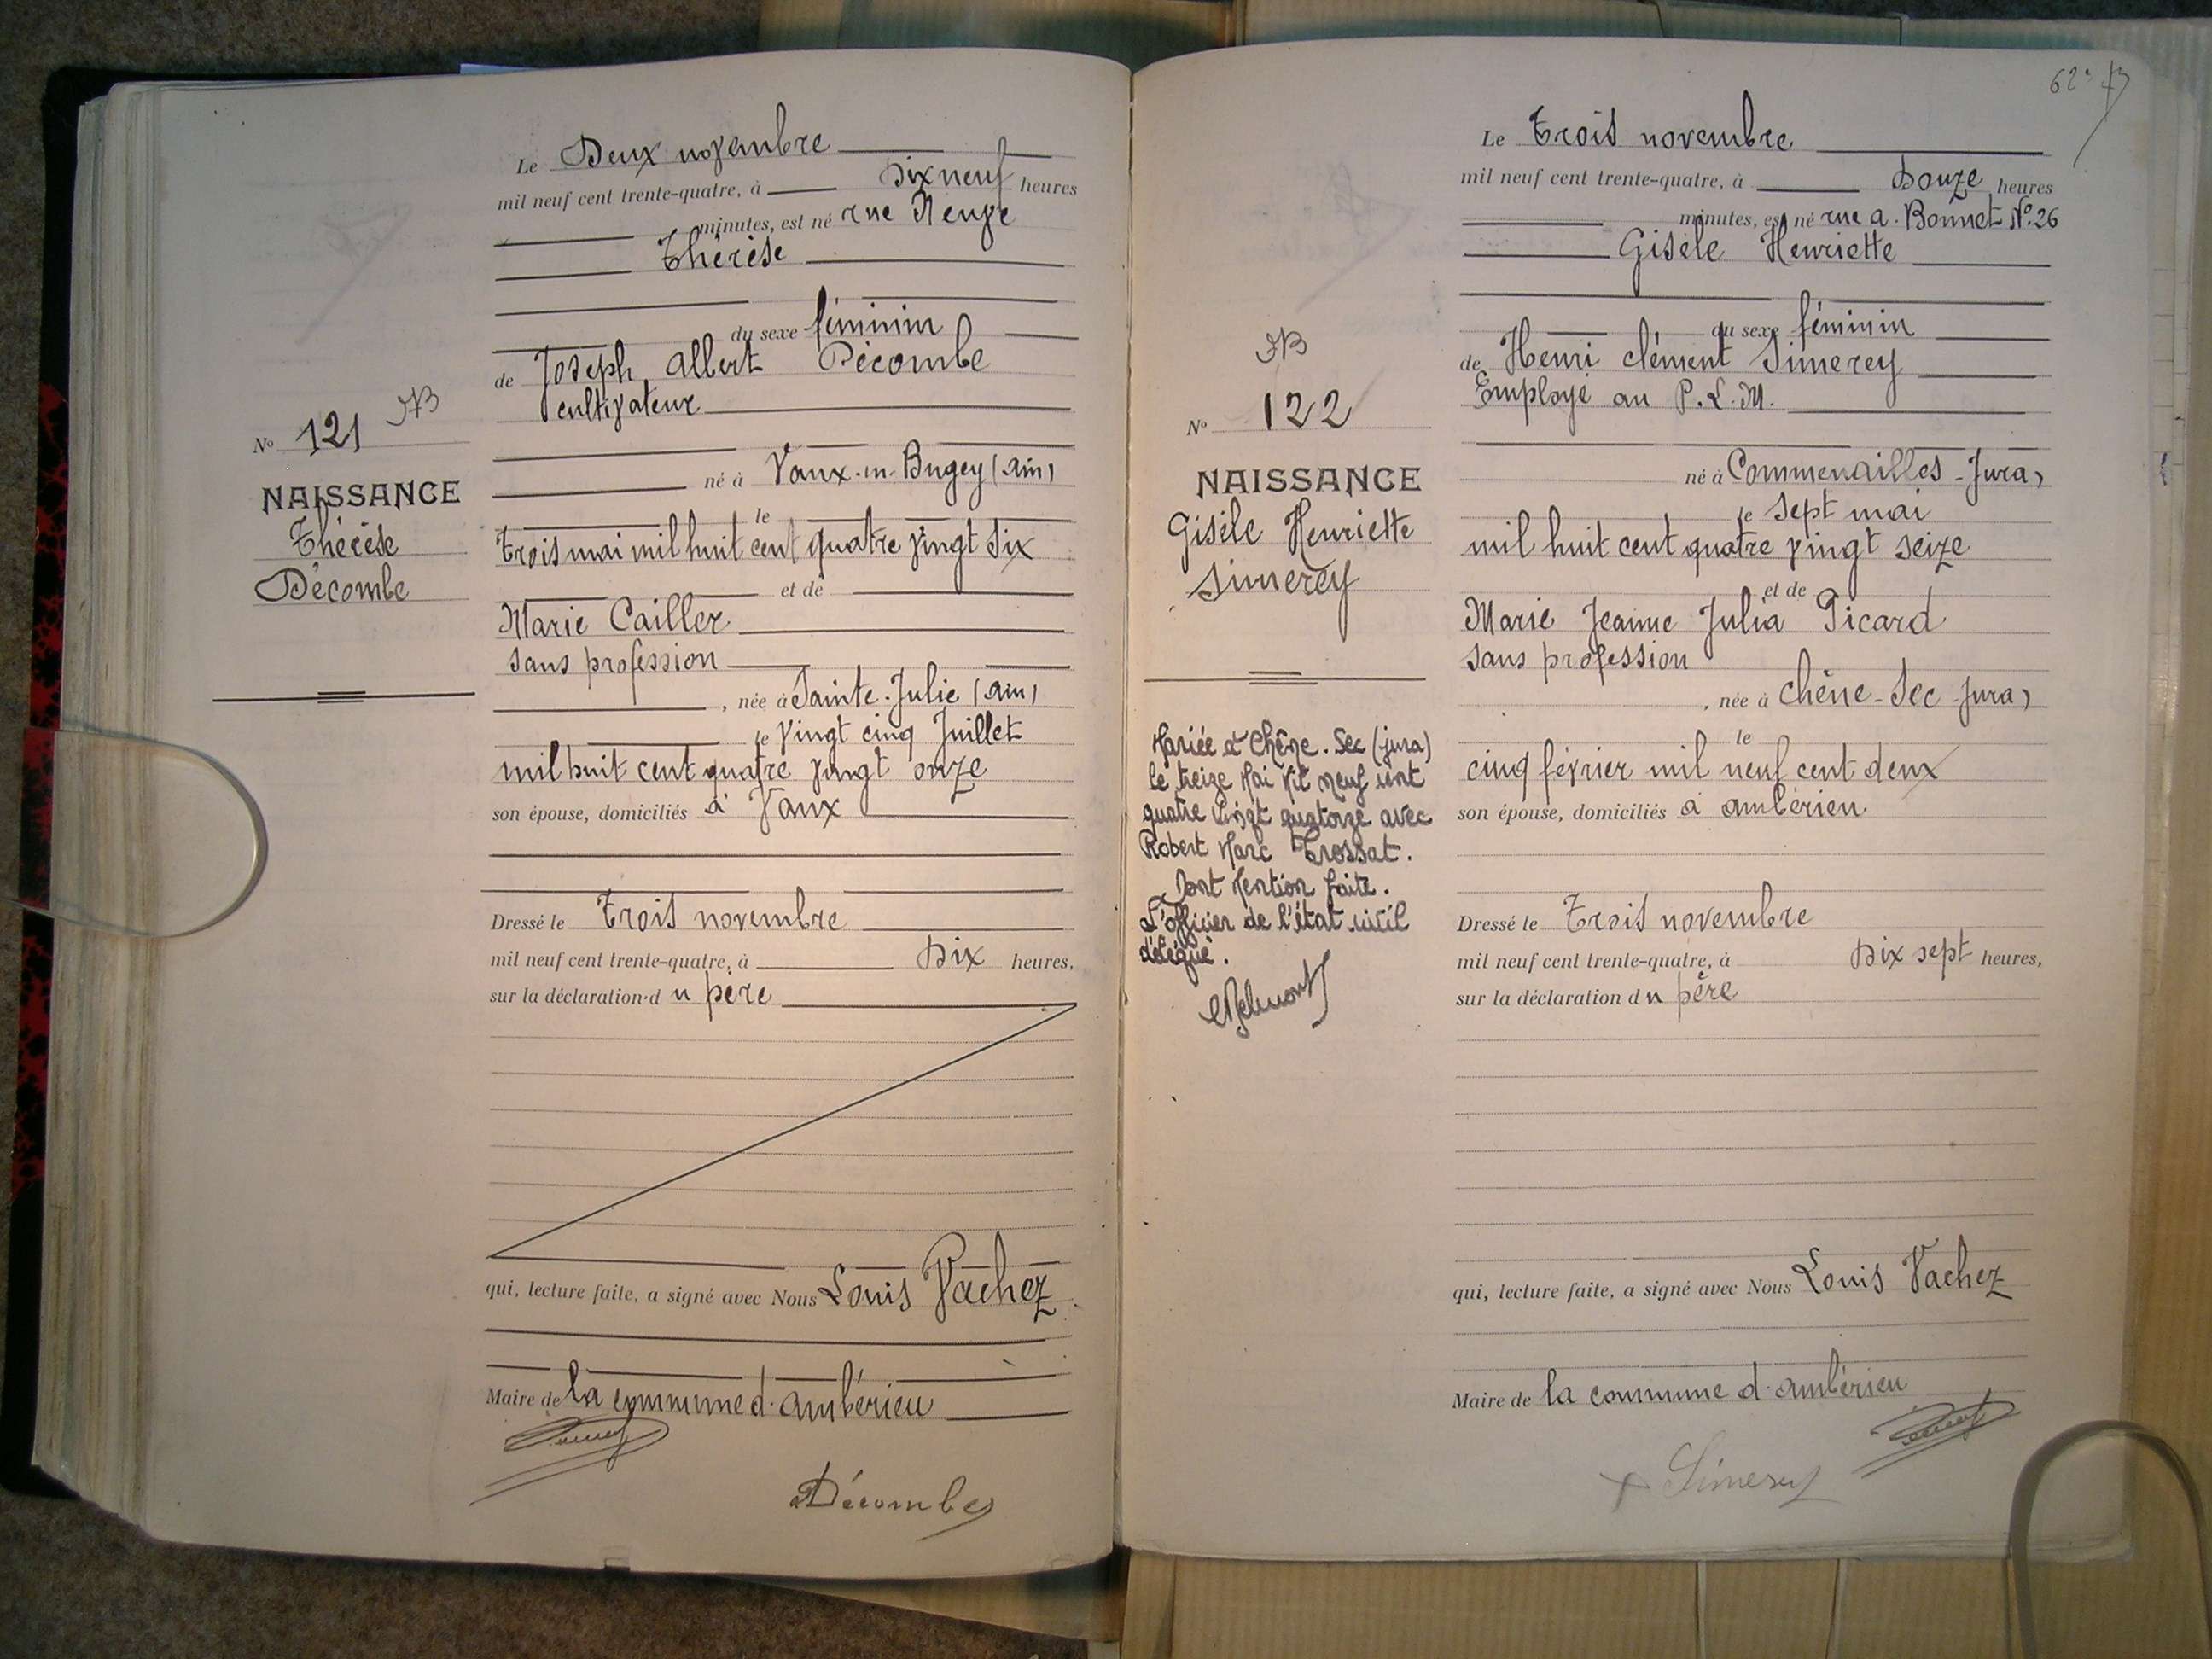 Le Deux novembre
mil neuf cent trente-quatre, à Dix neuf heures
minutes, est né rue Neuve
Thérèse
du sexe féminin
de Joseph Albert Décombe
cultivateur
né à Vaux-en-Bugey (Ain)
le
trois mai mil huit cent quatre vingt six
et de
Marie Cailler
sans profession
, née à Sainte-Julie (Ain)
le vingt cinq Juillet
mil huit cent quatre vingt onze
son épouse, domiciliés à Vaux
Dressé le Trois novembre
mil neuf cent trente-quatre, à Dix heures,
sur la déclaration d u père
qui, lecture faite, a signé avec Nous Louis Vachez
Maire de la commune d'Ambérieu
Décombe
No 121
NAISSANCE
Thérèse
Décombe
62
Le Trois novembre
mil neuf cent trente-quatre, à Douze heures
minutes, est né rue A. Bonnet No. 26
Gisèle Henriette
du sexe féminin
de Henri Clément Simerey
Employé au P.L.M.
né à Commenailles - Jura)
le sept mai
mil huit cent quatre vingt seize
et de
Marie Jeanne Julia Picard
sans profession
, née à Chêne-Sec - Jura)
le
cinq février mil neuf cent deux
son épouse, domiciliés à Ambérieu
Dressé le Trois novembre
mil neuf cent trente-quatre, à Dix sept heures,
sur la déclaration d u père
qui, lecture faite, a signé avec Nous Louis Vachez
Maire de la commune d'Ambérieu
Simerey
No 122
NAISSANCE
Gisèle Henriette
Simerey
Mariée à Chêne-Sec (Jura)
le treize Mai Mil neuf cent
quatre vingt quatorze avec
Robert Marc Trossat.
Dont Mention faite.
L'officier de l'état civil
délégué.